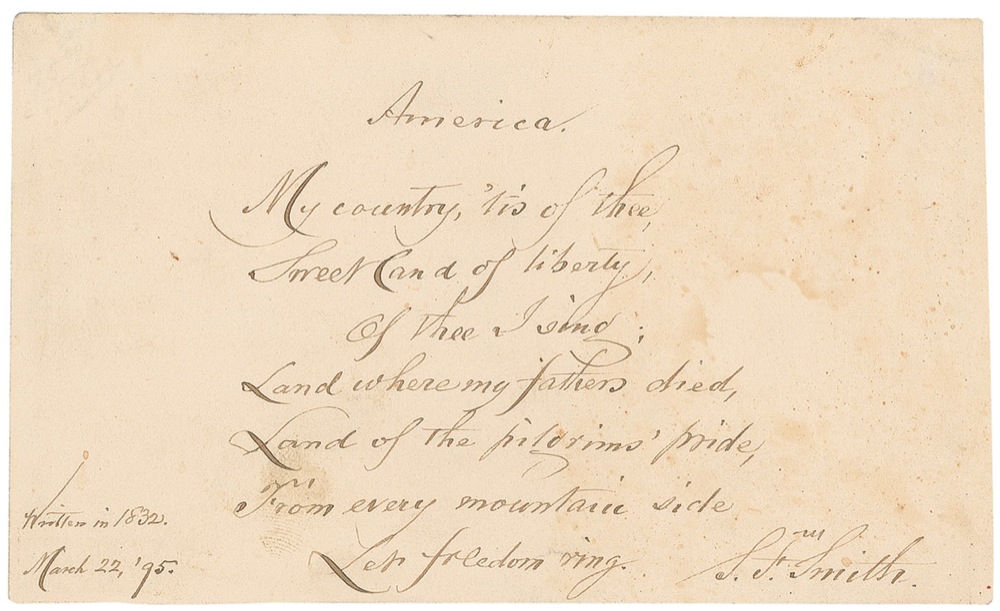 America.
My country, 'tis of thee,
Sweet land of liberty,
Of thee I sing;
Land where my fathers died,
Land of the pilgrims' pride,
From every mountain side
Let freedom ring.
S. F. Smith.
Written in 1832.
March 22, '95.